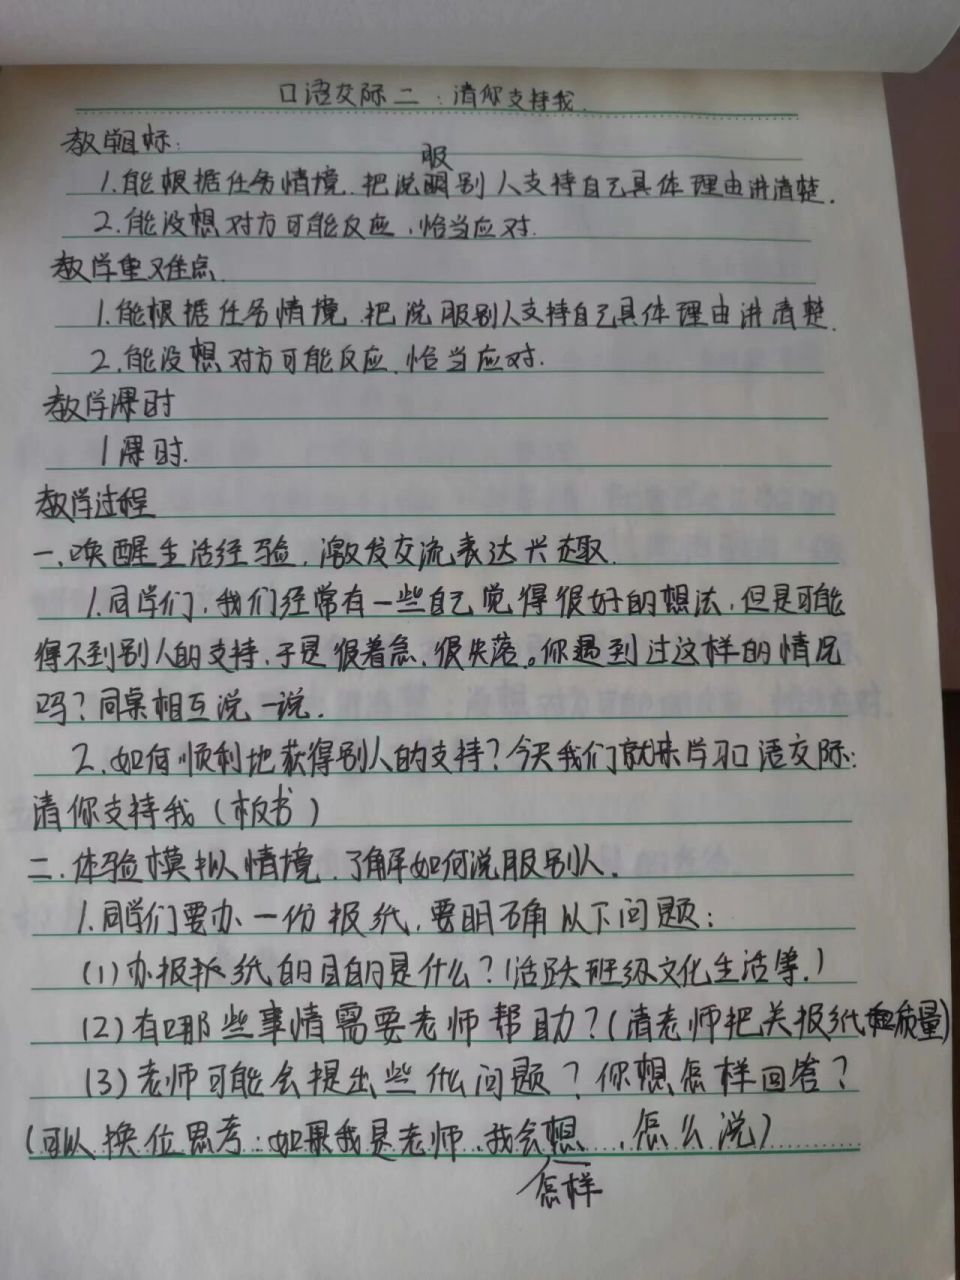 口语交际二：请你支持我.
教学目标:
1.能根据任务情境、把说服别人支持自己具体理由讲清楚.
2.能设想对方可能反应、恰当应对.
教学重难点
1.能根据任务情境、把说服别人支持自己具体理由讲清楚.
2.能设想对方可能反应、恰当应对.
教学课时
1课时.
教学过程
一、唤醒生活经验,激发交流表达兴趣.
1.同学们,我们经常有一些自己觉得很好的想法,但是可能
得不到别人的支持、于是很着急、很失落。你遇到过这样的情况
吗？同桌相互说一说.
2.如何顺利地获得别人的支持？今天我们就来学习口语交际:
请你支持我(板书)
二.体验模拟情境、了解如何说服别人.
1.同学们要办一份报纸,要明确以下问题:
(1)办报纸的目的是什么？(活跃班级文化生活等.)
(2)有哪些事情需要老师帮助？(请老师把关报纸质量)
(3)老师可能会提出些什么问题？你想怎样回答？
(可以换位思考:如果我是老师、我会怎样想、怎么说)